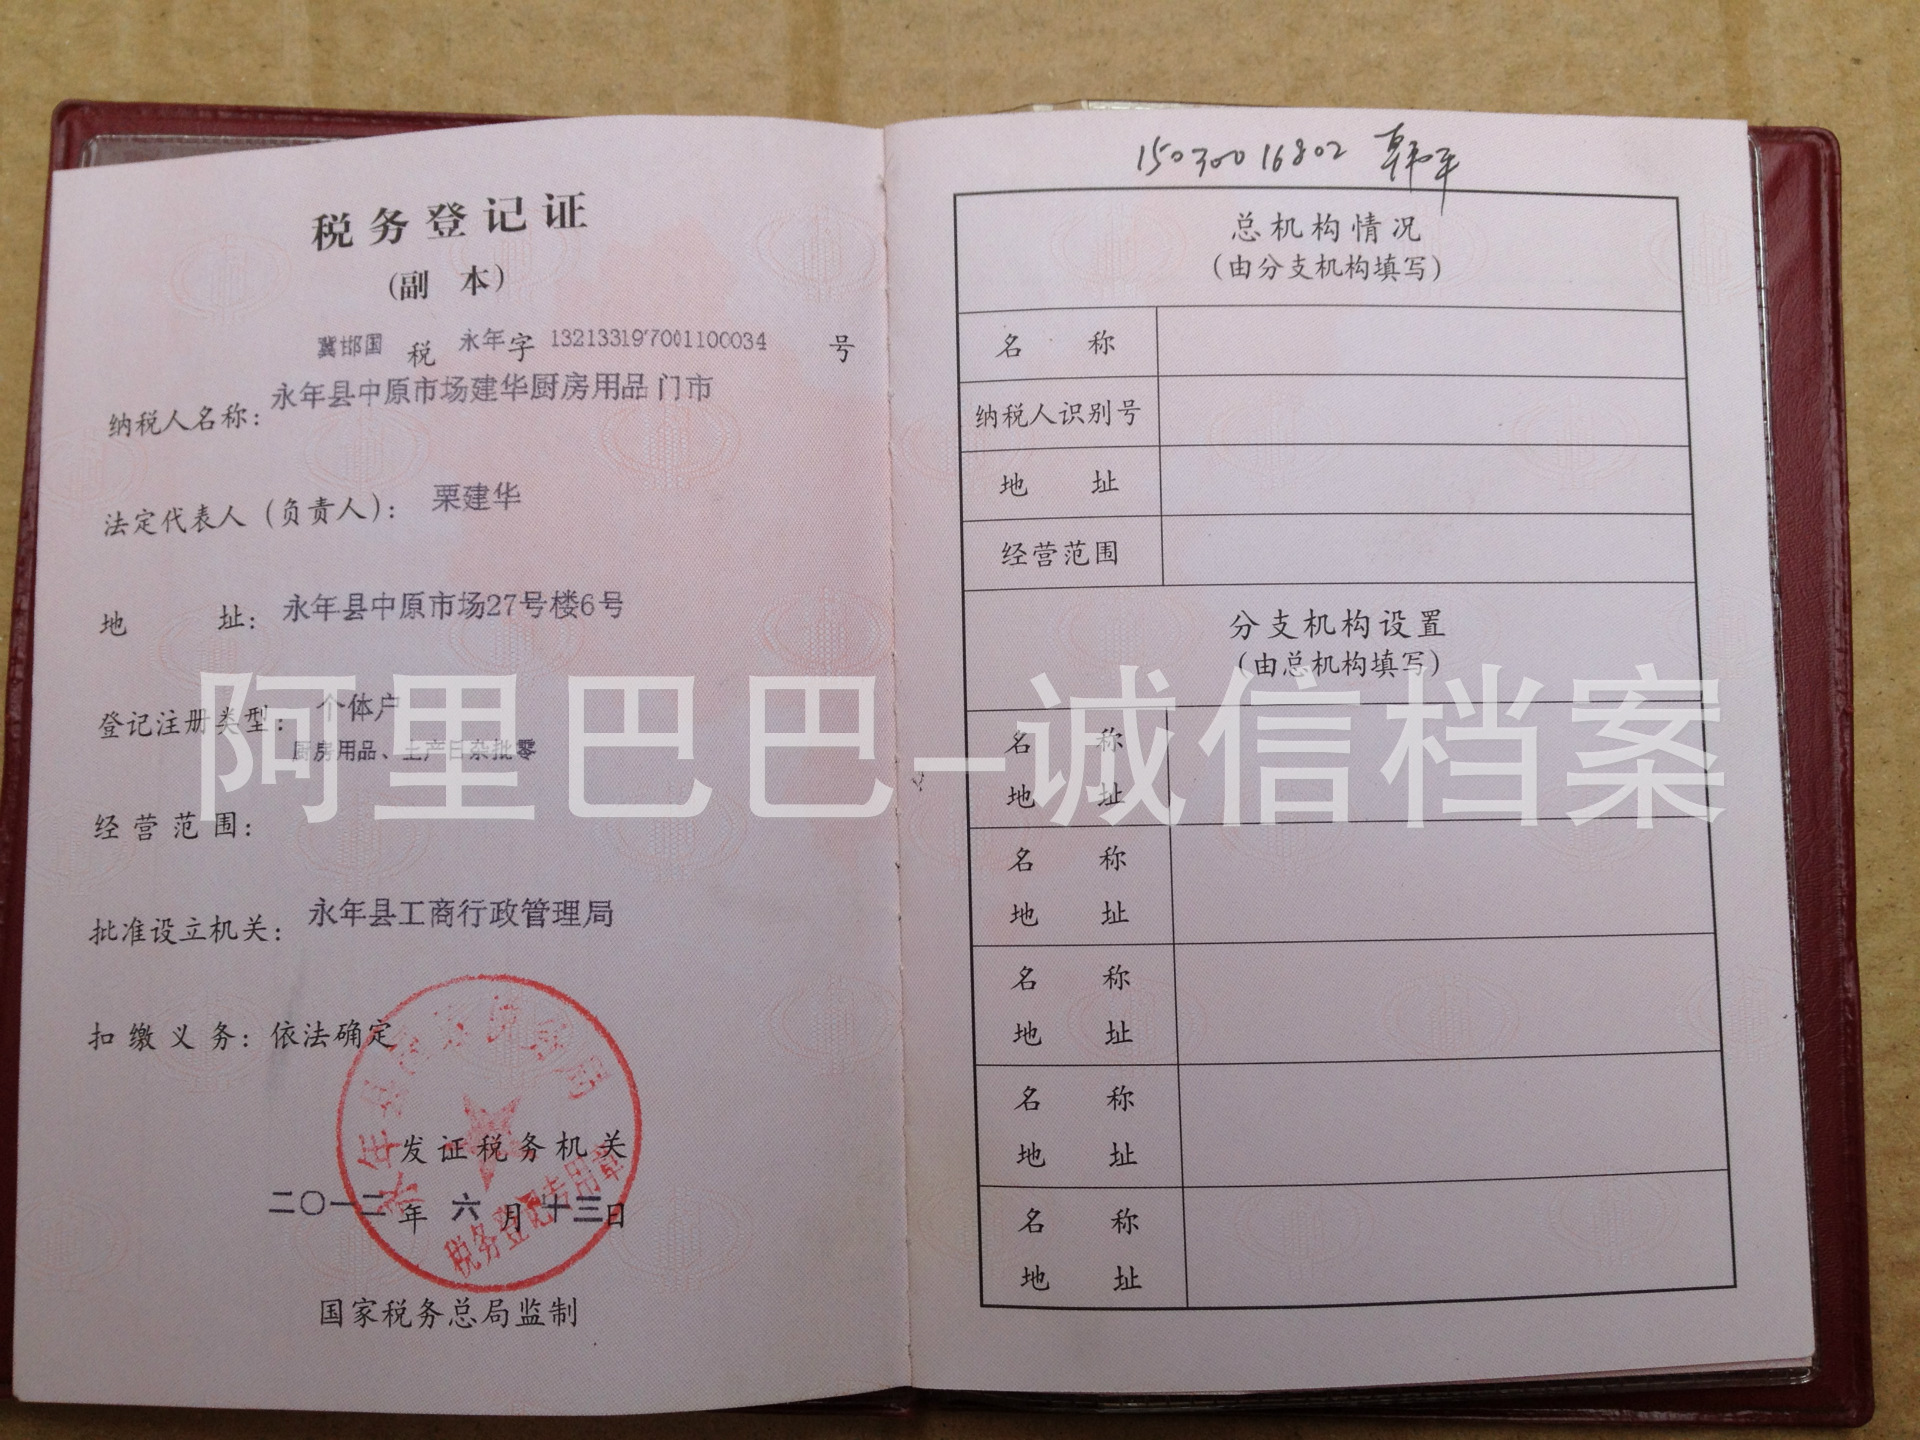 税务登记证
(副 本)
冀邯国 税 永年 字 132133197001100034 号
纳税人名称: 永年县中原市场建华厨房用品门市
法定代表人(负责人): 栗建华
地 址: 永年县中原市场27号楼6号
登记注册类型: 个体户
厨房用品、土产日杂批零
经营范围:
批准设立机关: 永年县工商行政管理局
扣缴义务: 依法确定
发证税务机关
二〇一二 年 六 月 十三 日
税务登记专用章
国家税务总局监制
15030016802
总机构情况
(由分支机构填写)
名 称
纳税人识别号
地 址
经营范围
分支机构设置
(由总机构填写)
名 称
地 址
名 称
地 址
名 称
地 址
名 称
地 址
名 称
地 址
阿里巴巴-诚信档案